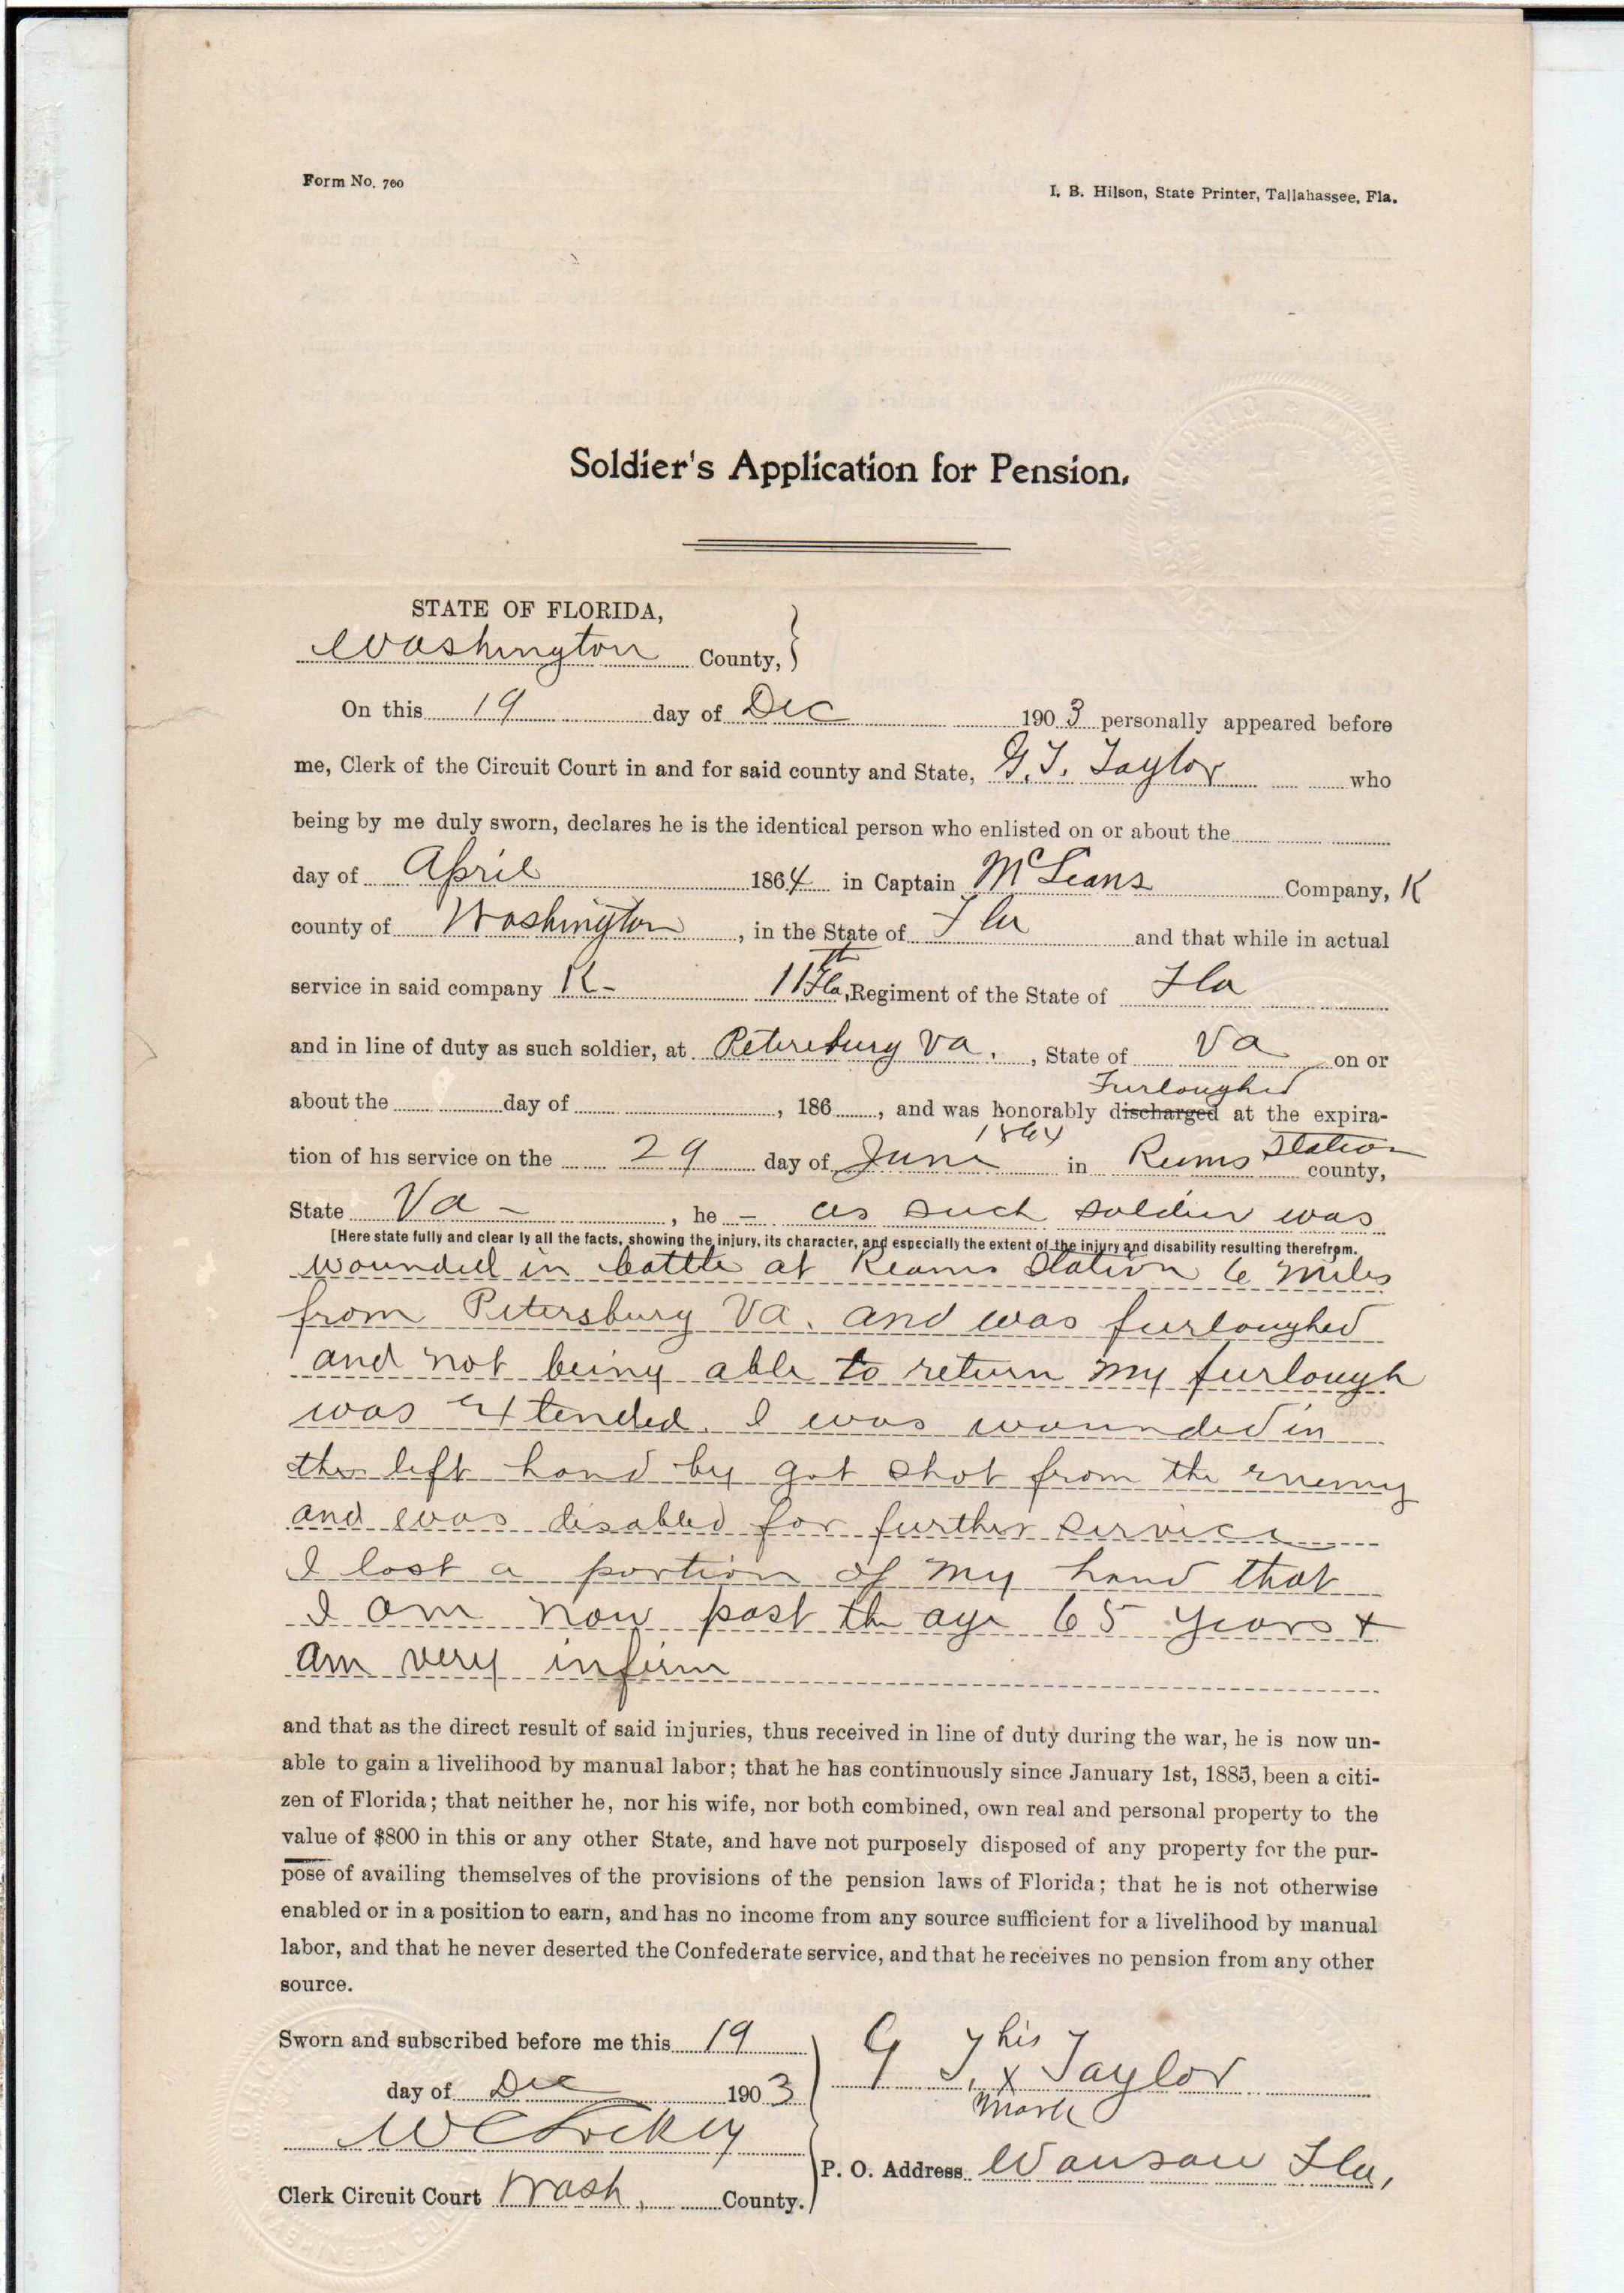 Form No. 700
I. B. Hilson, State Printer, Tallahassee, Fla.
Soldier's Application for Pension.
STATE OF FLORIDA,
Washington County,
On this 19 day of Dec 1903 personally appeared before
me, Clerk of the Circuit Court in and for said county and State, G. T. Taylor who
being by me duly sworn, declares he is the identical person who enlisted on or about the
day of April 1864 in Captain McLeans Company, K
county of Washington, in the State of Fla and that while in actual
service in said company K- 11th Fla, Regiment of the State of Fla
and in line of duty as such soldier, at Petersburg Va., State of Va on or
about the day of , 186 , and was honorably discharged Furloughed at the expira-
tion of his service on the 29 day of June 1864 in Reims Station county,
State Va - , he - as such soldier was
[Here state fully and clear ly all the facts, showing the injury, its character, and especially the extent of the injury and disability resulting therefrom.
wounded in battle at Reams Station 6 miles
from Petersburg Va. and was furloughed
and not being able to return my furlough
was extended. I was wounded in
the left hand by got shot from the enemy
and was disabled for further service
I lost a portion of my hand that
I am now past the age 65 years +
am very infirm
and that as the direct result of said injuries, thus received in line of duty during the war, he is now un-
able to gain a livelihood by manual labor; that he has continuously since January 1st, 1885, been a citi-
zen of Florida; that neither he, nor his wife, nor both combined, own real and personal property to the
value of $800 in this or any other State, and have not purposely disposed of any property for the pur-
pose of availing themselves of the provisions of the pension laws of Florida; that he is not otherwise
enabled or in a position to earn, and has no income from any source sufficient for a livelihood by manual
labor, and that he never deserted the Confederate service, and that he receives no pension from any other
source.
Sworn and subscribed before me this 19
day of Dec 1903
G T. his x mark Taylor
W C Lockey
P. O. Address Wausau Fla,
Clerk Circuit Court Wash, County.